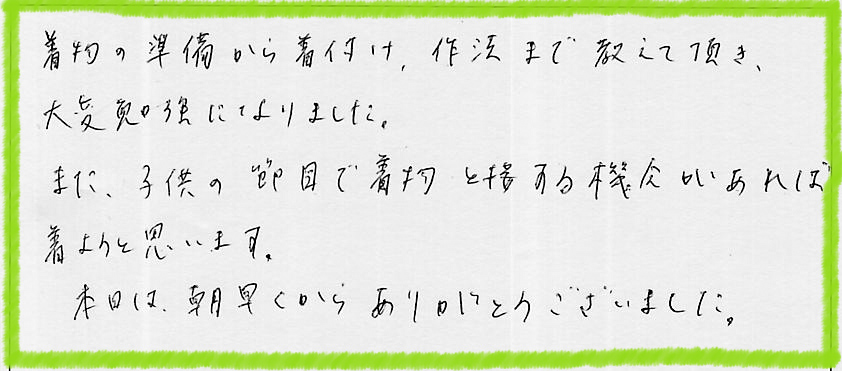 着物の準備から着付け、作法まで教えて頂き、
大変勉強になりました。
また、子供の節目で着物と接する機会があれば
着ようと思います。
本日は、朝早くからありがとうございました。